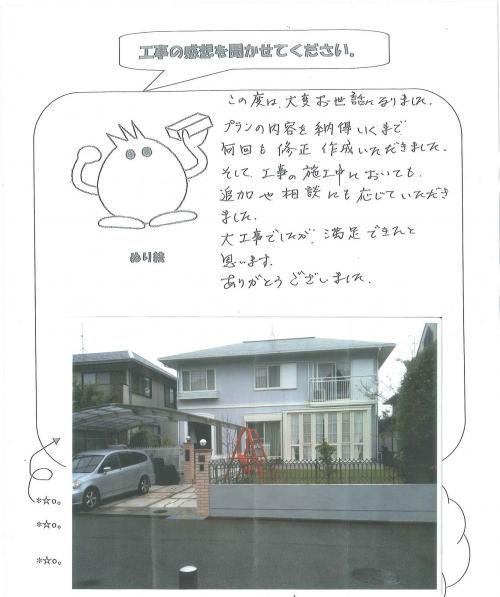 工事の感想を聞かせてください。
この度は、大変お世話になりました。
プランの内容を納得いくまで
何回も修正作成いただきました。
そして、工事の施工中においても、
追加や相談にも応じていただき
ました。
大工事でしたが、満足できたと
思います。
ありがとうございました。
ぬり絵
*☆。
*☆。
*☆。